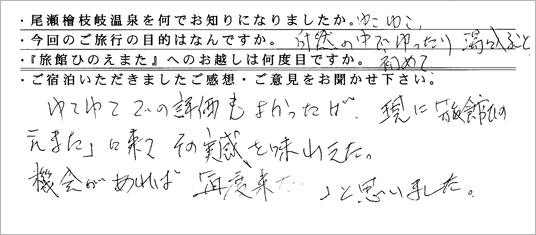 ・尾瀬檜枝岐温泉を何でお知りになりましたか。ゆこゆこ
・今回のご旅行の目的はなんですか。自然の中でゆったり
・『旅館ひのえまた』へのお越しは何度目ですか。初めて
・ご宿泊いただきましたご感想・ご意見をお聞かせ下さい。
ゆこゆこでの評価もよかったが、現に「旅館ひの
えまた」に来てその実感を味わえた。
機会があれば再度来た と思いました。